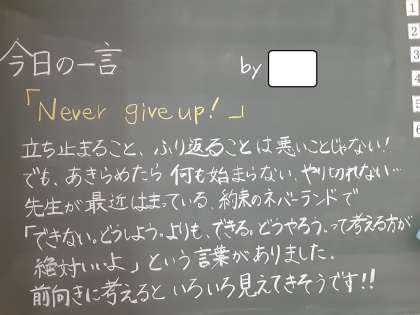 今日の一言 by
「Never give up!」
立ち止まること、ふり返ることは悪いことじゃない!
でも、あきらめたら何も始まらない、やり切れない…
先生が最近はまっている、約束のネバーランドで
「できない。どうしよう。よりも、できる。どうやろう。って考える方が
絶対いいよ」という言葉がありました。
前向きに考えるといろいろ見えてきそうです!!
1
2
3
4
5
6